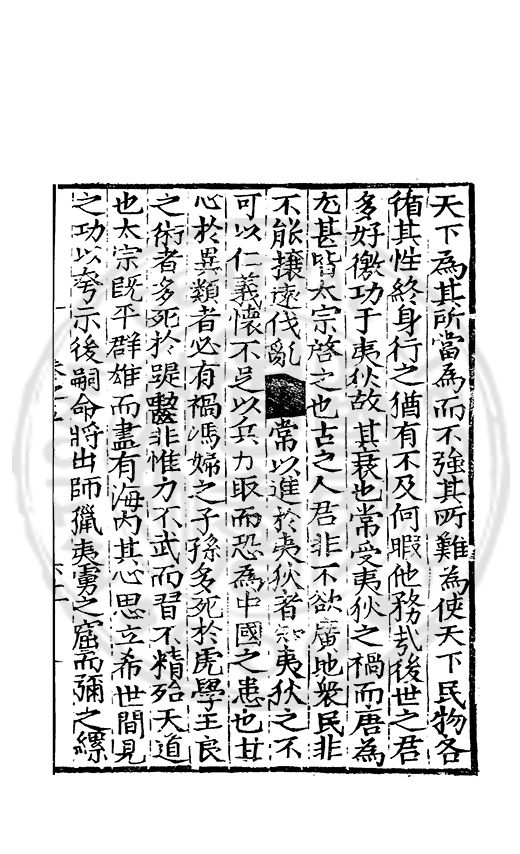 天下為其所當為而不強其所難為使天下民物各
循其性終身行之猶有不及何暇他務哉後世之君
多好徼功于夷狄故其衰也常受夷狄之禍而唐為
尤甚皆太宗啓之也古之人君非不欲廣地衆民非
不能攘遠伐亂常以進於夷狄者知夷狄之不
可以仁義懷不足以兵力取而恐為中國之患也甘
心於異類者必有禍馮婦之子孫多死於虎學王良
之術者多死於踶齧非惟力不武而習不精殆天道
也太宗既平群雄而盡有海內其心思立希世間見
之功以夸示後嗣命將出師獵夷虜之窟而彌之縲